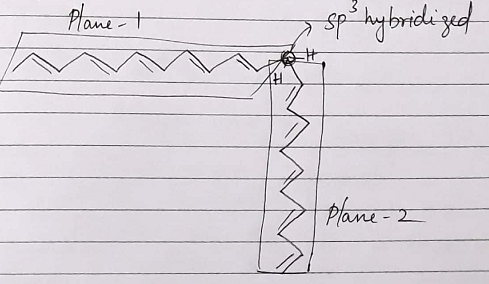 Plane-1
sp³ hybridized
H
H
Plane-2